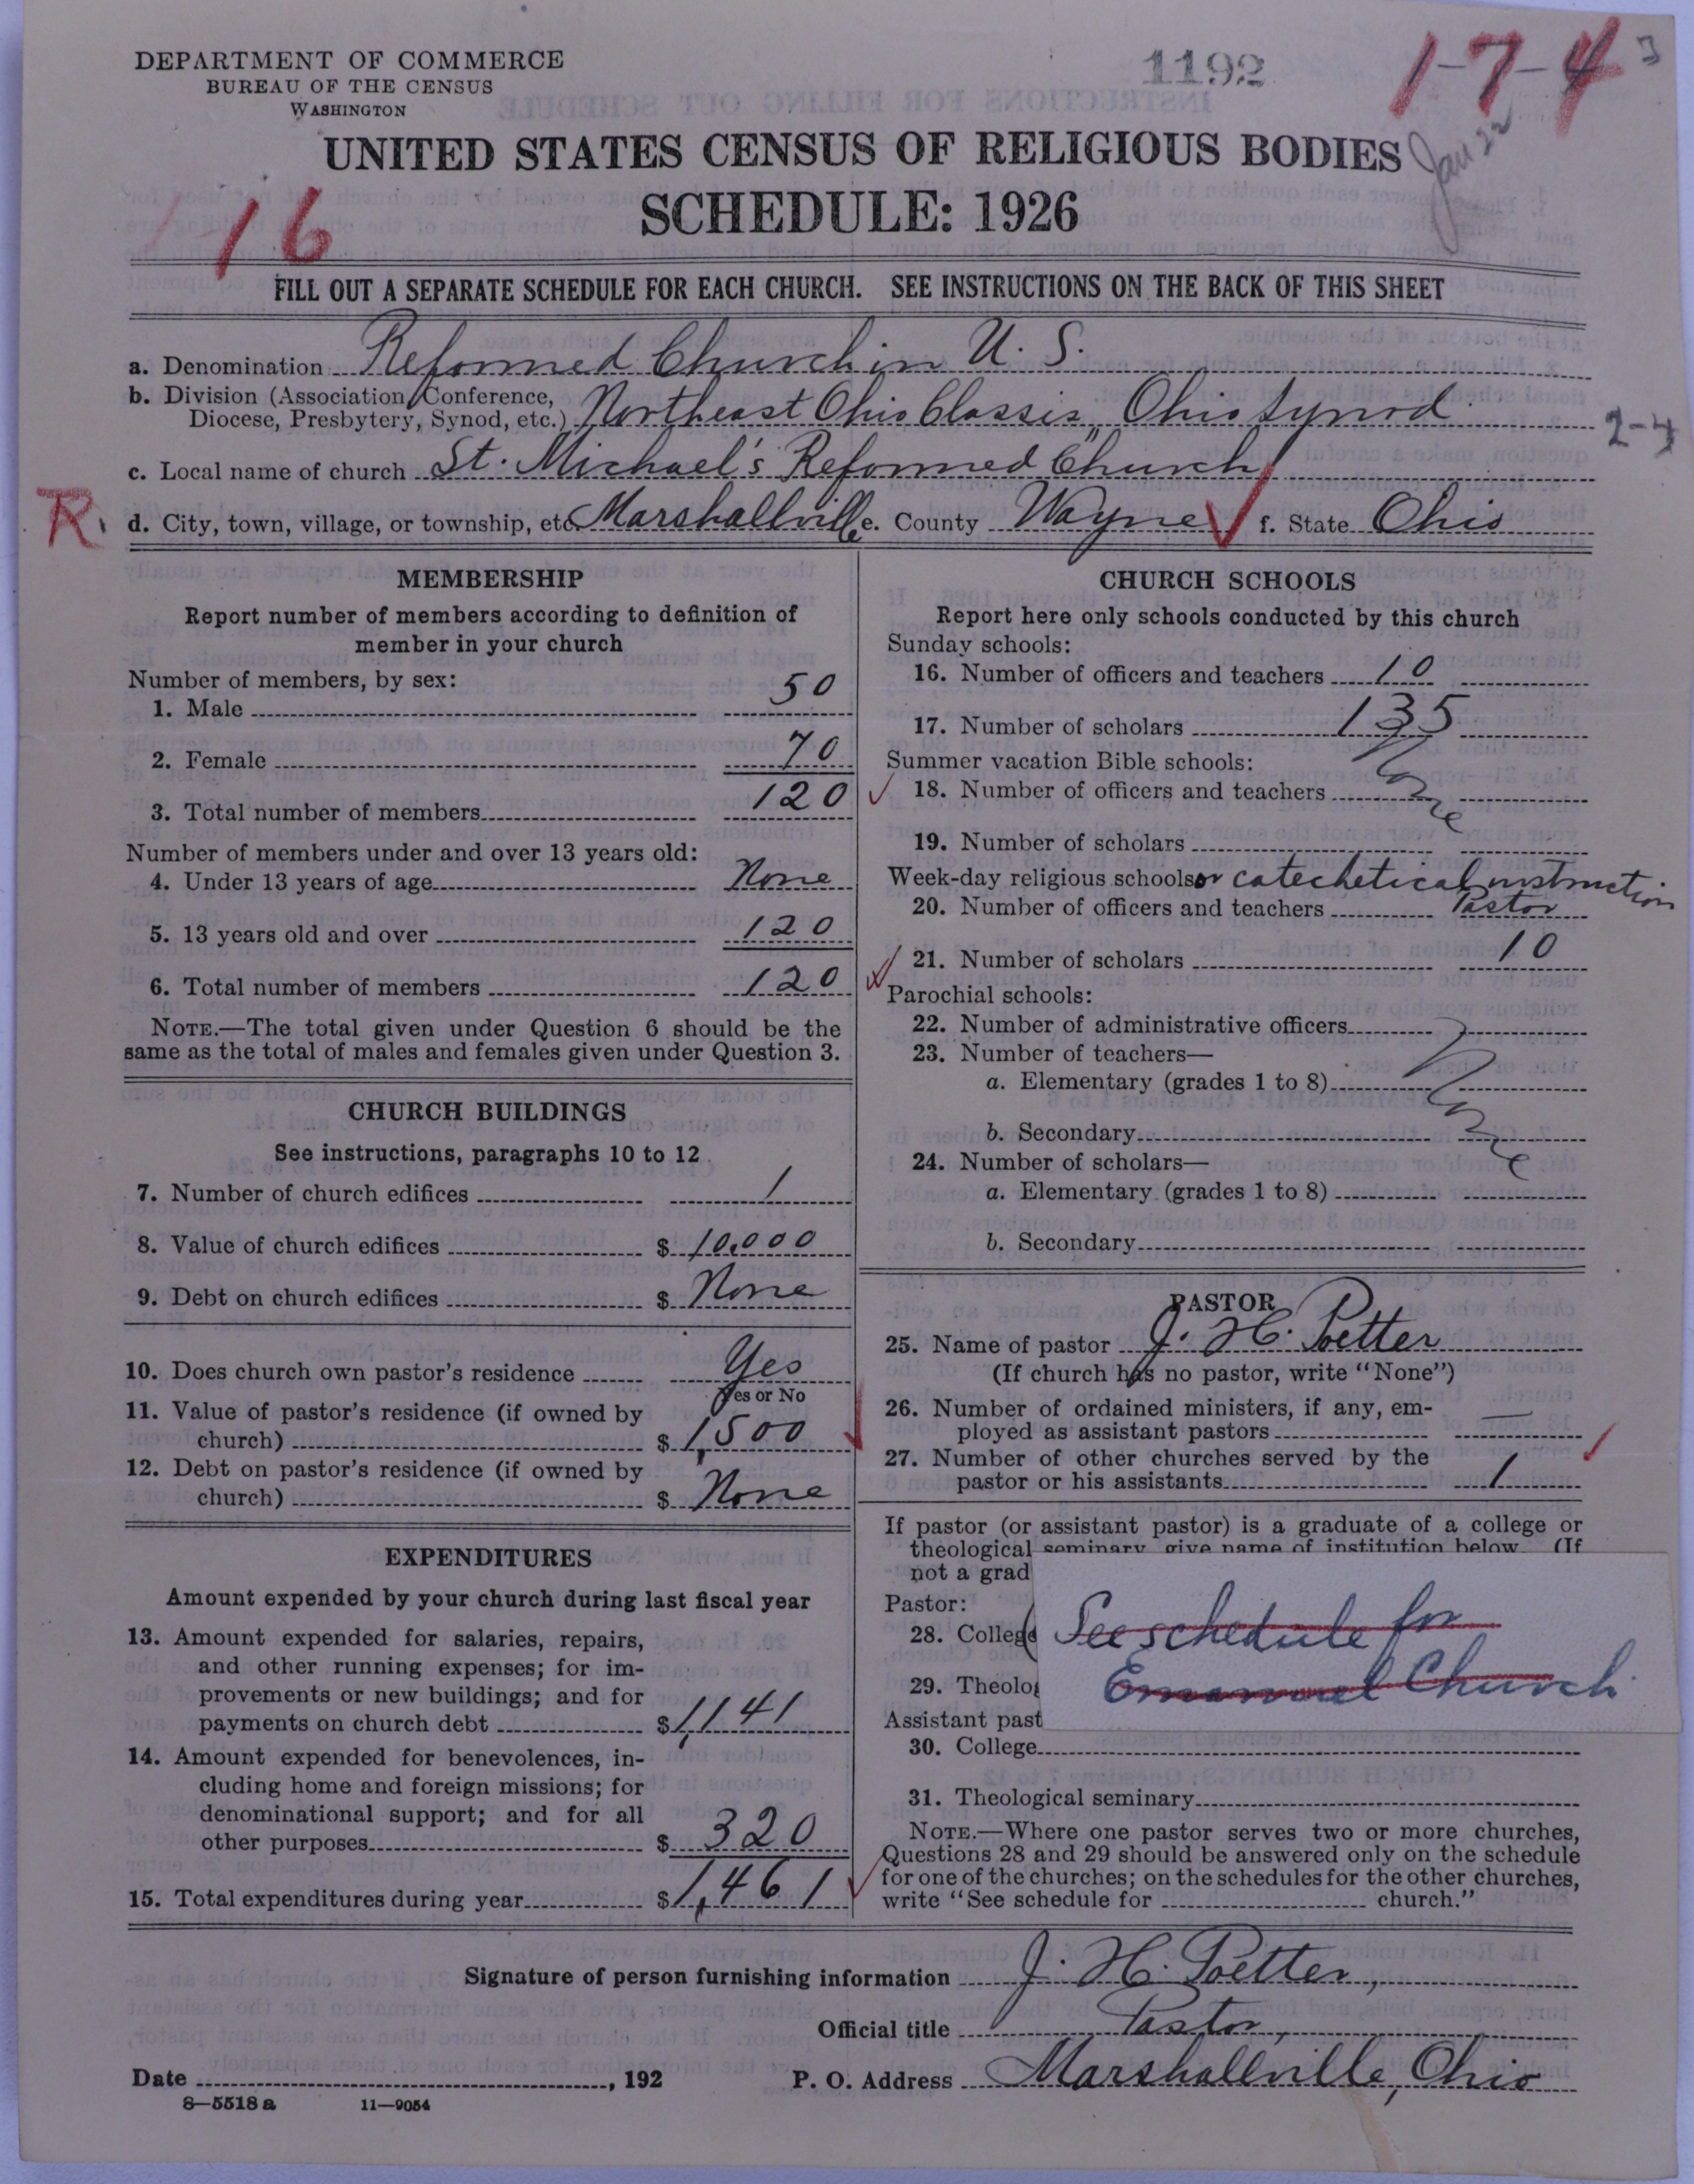 DEPARTMENT OF COMMERCE
BUREAU OF THE CENSUS
WASHINGTON
1192
1-7-4
Jan 22
UNITED STATES CENSUS OF RELIGIOUS BODIES
SCHEDULE: 1926
16
FILL OUT A SEPARATE SCHEDULE FOR EACH CHURCH. SEE INSTRUCTIONS ON THE BACK OF THIS SHEET
a. Denomination Reformed Church in U. S.
b. Division (Association, Conference,
Diocese, Presbytery, Synod, etc.) Northeast Ohio Classis, Ohio Synod
2-4
c. Local name of church St. Michael's Reformed Church
R.
d. City, town, village, or township, etc. Marshallville e. County Wayne f. State Ohio
MEMBERSHIP
Report number of members according to definition of
member in your church
Number of members, by sex:
1. Male 50
2. Female 70
3. Total number of members 120
Number of members under and over 13 years old:
4. Under 13 years of age None
5. 13 years old and over 120
6. Total number of members 120
NOTE.—The total given under Question 6 should be the
same as the total of males and females given under Question 3.
CHURCH BUILDINGS
See instructions, paragraphs 10 to 12
7. Number of church edifices 1
8. Value of church edifices $ 10,000
9. Debt on church edifices $ None
10. Does church own pastor's residence Yes
Yes or No
11. Value of pastor's residence (if owned by
church) $ 1,500
12. Debt on pastor's residence (if owned by
church) $ None
EXPENDITURES
Amount expended by your church during last fiscal year
13. Amount expended for salaries, repairs,
and other running expenses; for im-
provements or new buildings; and for
payments on church debt $ 1,141
14. Amount expended for benevolences, in-
cluding home and foreign missions; for
denominational support; and for all
other purposes $ 320
15. Total expenditures during year $ 1,461
CHURCH SCHOOLS
Report here only schools conducted by this church
Sunday schools:
16. Number of officers and teachers 10
17. Number of scholars 135
Summer vacation Bible schools:
18. Number of officers and teachers None
19. Number of scholars
Week-day religious schools or catechetical instruction
20. Number of officers and teachers Pastor
21. Number of scholars 10
Parochial schools:
22. Number of administrative officers
23. Number of teachers—
a. Elementary (grades 1 to 8) None
b. Secondary
24. Number of scholars—
a. Elementary (grades 1 to 8)
b. Secondary
PASTOR
25. Name of pastor J. H. Poetter
(If church has no pastor, write "None")
26. Number of ordained ministers, if any, em-
ployed as assistant pastors —
27. Number of other churches served by the
pastor or his assistants 1
If pastor (or assistant pastor) is a graduate of a college or
theological seminary, give name of institution below. (If
not a grad
Pastor:
28. College
29. Theolog
See schedule for
Emanuel Church
Assistant past
30. College
31. Theological seminary
NOTE.—Where one pastor serves two or more churches,
Questions 28 and 29 should be answered only on the schedule
for one of the churches; on the schedules for the other churches,
write "See schedule for church."
Signature of person furnishing information J. H. Poetter,
Official title Pastor,
Date , 192 P. O. Address Marshallville, Ohio
8—5518 a 11—9054